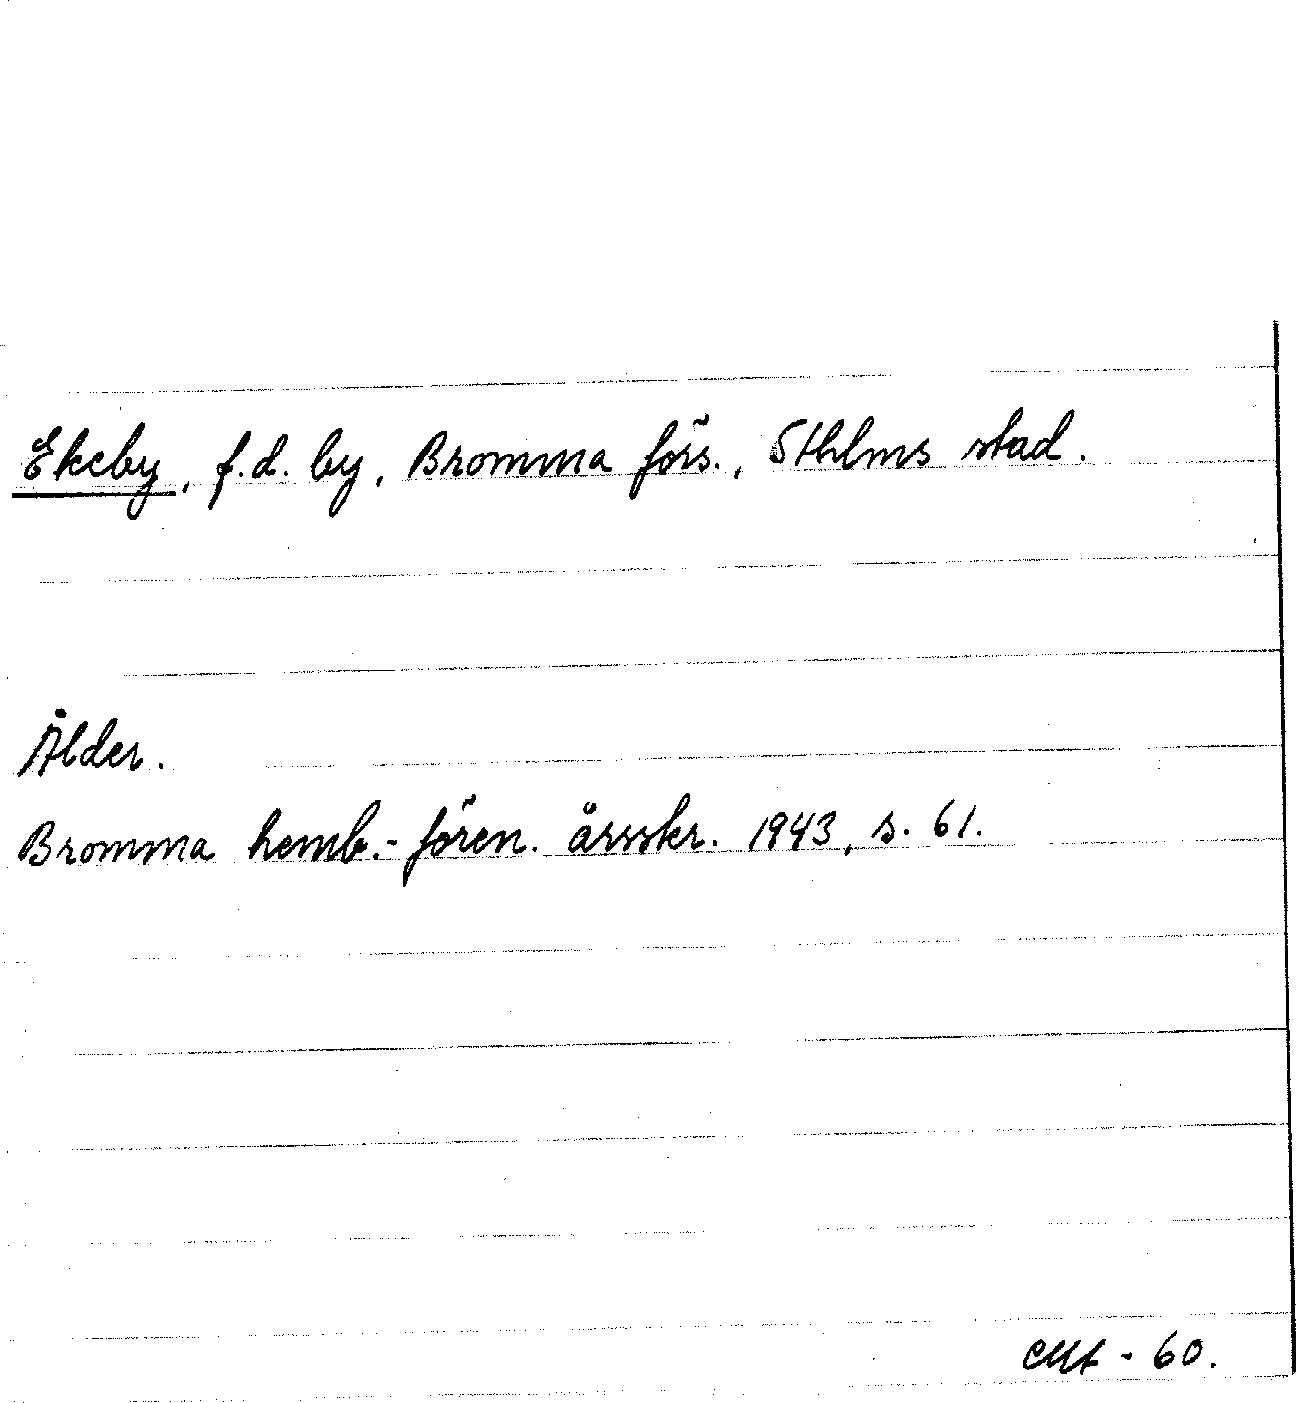 Ekeby, f.d. by, Bromma förs., Sthlms stad.
Ålder.
Bromma hemb.-fören. årsskr. 1943, s. 61.
- 60.